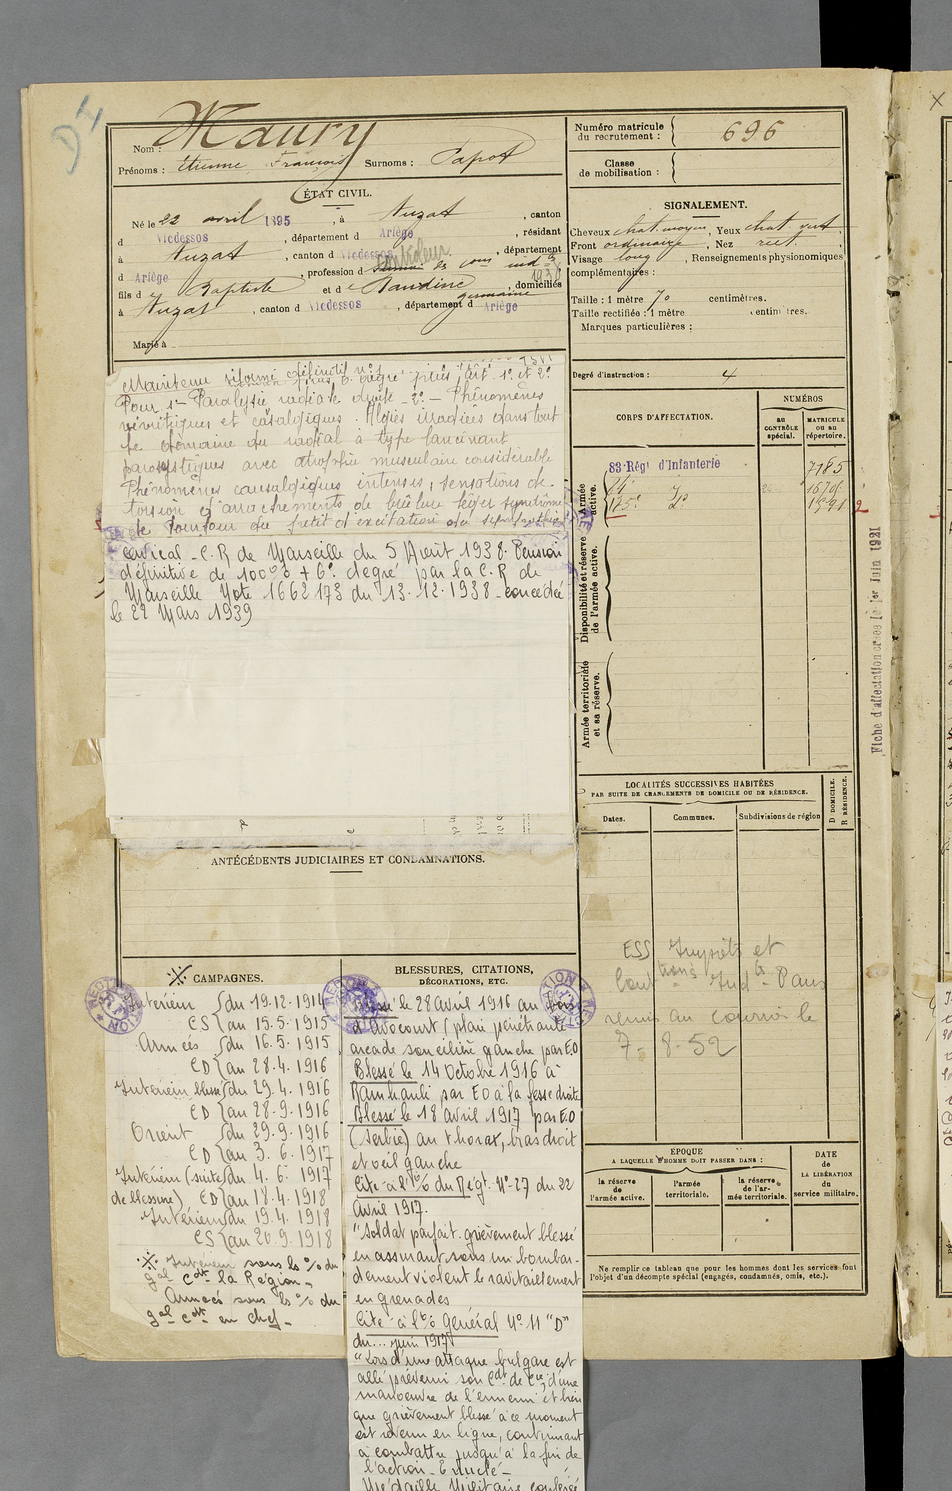 D4
Nom : Maury
Prénoms : Etienne François Surnoms : Papot
ÉTAT CIVIL.
Né le 22 avril 1895, à Auzat, canton
d Vicdessos, département d Ariège, résidant
à Auzat, canton d Vicdessos, département
d Ariège, profession d
1938
fils de Baptiste et de Dandine, domiciliés
germaine
à Auzat, canton d Vicdessos, département d Ariège
Marié à
Numéro matricule
du recrutement : 696
Classe
de mobilisation :
SIGNALEMENT.
Cheveux chat. moyen, Yeux chat vert
Front ordinaire, Nez rect.
Visage long, Renseignements physionomiques
complémentaires :
Taille : 1 mètre 70 centimètres.
Taille rectifiée : 1 mètre centimètres.
Marques particulières :
Degré d'instruction : 4
Maintenu réformé définitif n° 1
Pour 1° Paralysie radiale droite - 2° - Phénomènes
névritiques et causalgiques. Algies irradiées dans tout
le domaine du radial à type lancinant
paroxystiques avec atrophie musculaire considérable
Phénomènes causalgiques intenses, sensations de
torsion et d'arrachements de brûlure léger syndrome
de
cervical - C.R de Marseille du 5 Août 1938. Pension
définitive de 100% + 6° degré par la C.R de
Marseille Note 1662173 du 13.12.1938 - concédée
le 22 Mars 1939
CORPS D'AFFECTATION.
NUMÉROS
au
CONTRÔLE
spécial.
MATRICULE
ou au
répertoire.
Armée
active.
83 Rég' d'Infanterie 7185
14° d°
175° d° 1591
2
Disponibilité et réserve
de l'armée active.
Armée territoriale
et sa réserve.
Fiche d'affectation créée le 1er Juin 1921
LOCALITÉS SUCCESSIVES HABITÉES
PAR SUITE DE CHANGEMENTS DE DOMICILE OU DE RÉSIDENCE.
Dates.
Communes.
Subdivisions de région
D DOMICILE.
R RÉSIDENCE.
ANTÉCÉDENTS JUDICIAIRES ET CONDAMNATIONS.
ESS Impôts et
Contions Indtes Paris
remis au courrier le
7. 8. 52
※ CAMPAGNES.
Intérieur { du 19.12.1914
CS { au 15.5.1915
Armées { du 16.5.1915
CD { au 28.4.1916
Intérieur blessé { du 29.4.1916
CD { au 28.9.1916
Orient { du 29.9.1916
CD { au 3.6.1917
Intérieur (suite { du 4.6.1917
de blessure) CD { au 18.4.1918
Intérieur { du 19.4.1918
CS { au 20.9.1918
※ Intérieur sous les % du
gal cdt la Région -
Armées sous les % du
gal cdt en chef -
BLESSURES, CITATIONS,
DÉCORATIONS, ETC.
Blessé le 28 avril 1916 au bois
d'Avocourt (plaie pénétrante
arcade sourcilière gauche par E.O
Blessé le 14 octobre 1916 à
par EO à la fesse droite
Blessé le 18 avril 1917 par E.O
(Serbie) au thorax, bras droit
et œil gauche
Cité à l'% du Régt. N° 27 du 22
Avril 1917.
"Soldat parfait. grièvement blessé
en assurant sous un bombar-
dement violent le ravitaillement
en grenades
Cité à l'% Général N° 11 "D"
du... juin 1917
"Lors d'une attaque bulgare est
allé prévenir son Cdt de Cie, d'une
manoeuvre de l'ennemi et bien
que grièvement blessé à ce moment
est revenu en ligne, continuant
à combattre jusqu'à la fin de
l'action -
Médaille Militaire conférée
ÉPOQUE
A LAQUELLE L'HOMME DOIT PASSER DANS :
la réserve
de
l'armée active.
l'armée
territoriale.
la réserve
de l'ar-
mée territoriale.
DATE
de
LA LIBÉRATION
du
service militaire.
Ne remplir ce tableau que pour les hommes dont les services font
l'objet d'un décompte spécial (engagés, condamnés, omis, etc.).